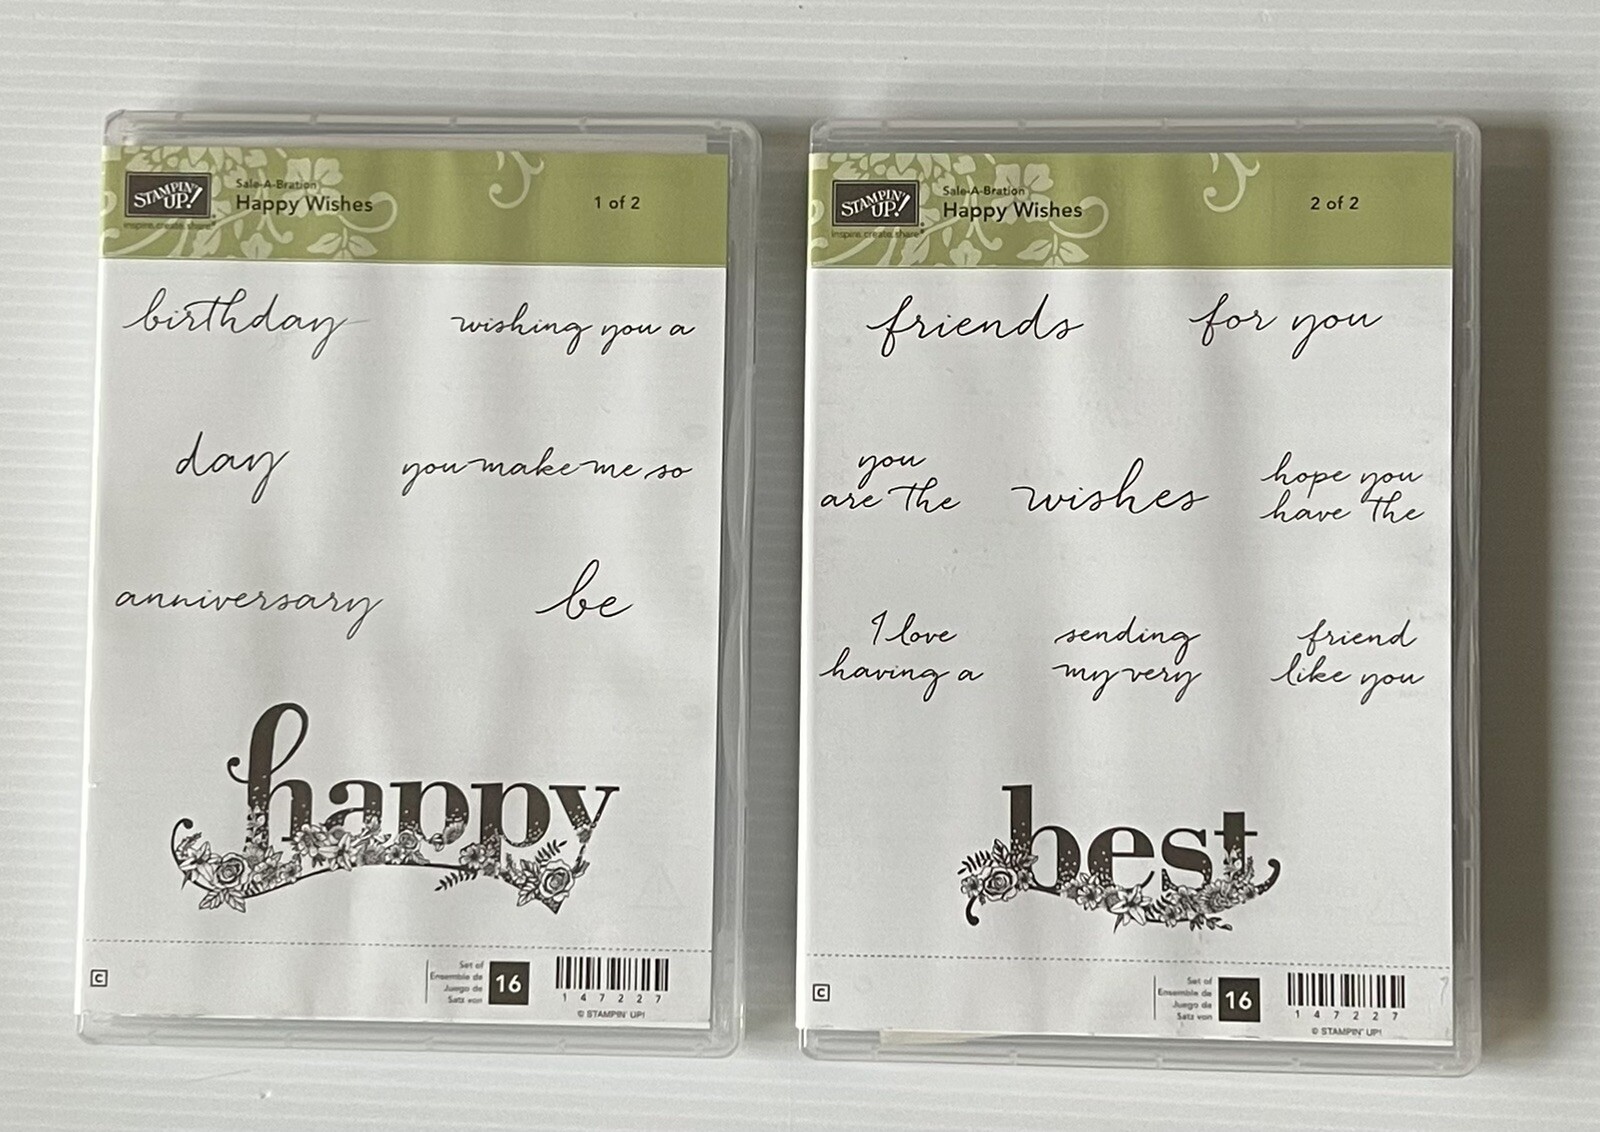 STAMPIN' UP!®
inspire.create.share®
Sale-A-Bration
Happy Wishes
1 of 2
birthday
wishing you a
day
you make me so
anniversary
be
happy
C
Set of
Ensemble de
Juego de
Satz von
16
147227
© STAMPIN' UP!
STAMPIN' UP!®
inspire.create.share®
Sale-A-Bration
Happy Wishes
2 of 2
friends
for you
you
are the
wishes
hope you
have the
I love
having a
sending
my very
friend
like you
best
C
Set of
Ensemble de
Juego de
Satz von
16
147227
© STAMPIN' UP!